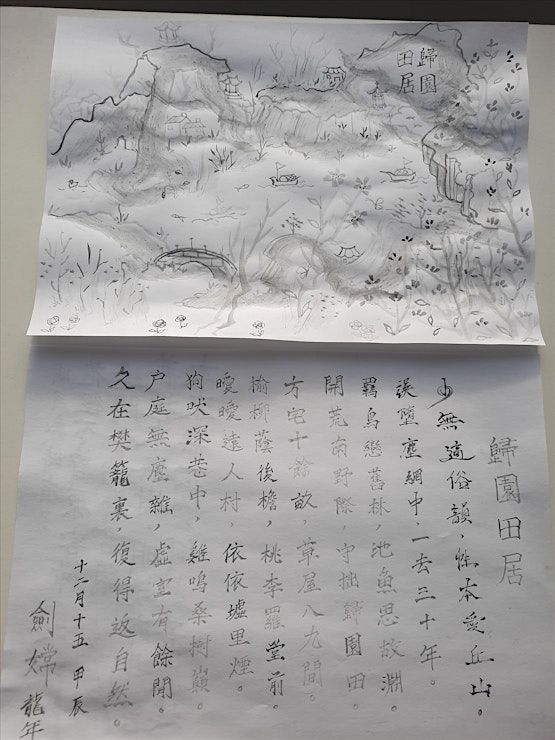 歸園
田居
歸園田居
少無適俗韻，性本愛丘山。
誤墮塵網中，一去三十年。
羈鳥戀舊林，池魚思故淵。
開荒南野際，守拙歸園田。
方宅十餘畝，草屋八九間。
榆柳蔭後檐，桃李羅堂前。
曖曖遠人村，依依墟里煙。
狗吠深巷中，雞鳴桑樹巔。
户庭無塵雜，虛室有餘閒。
久在樊籠裏，復得返自然。
十二月十五 甲辰
劍嫦 龍年